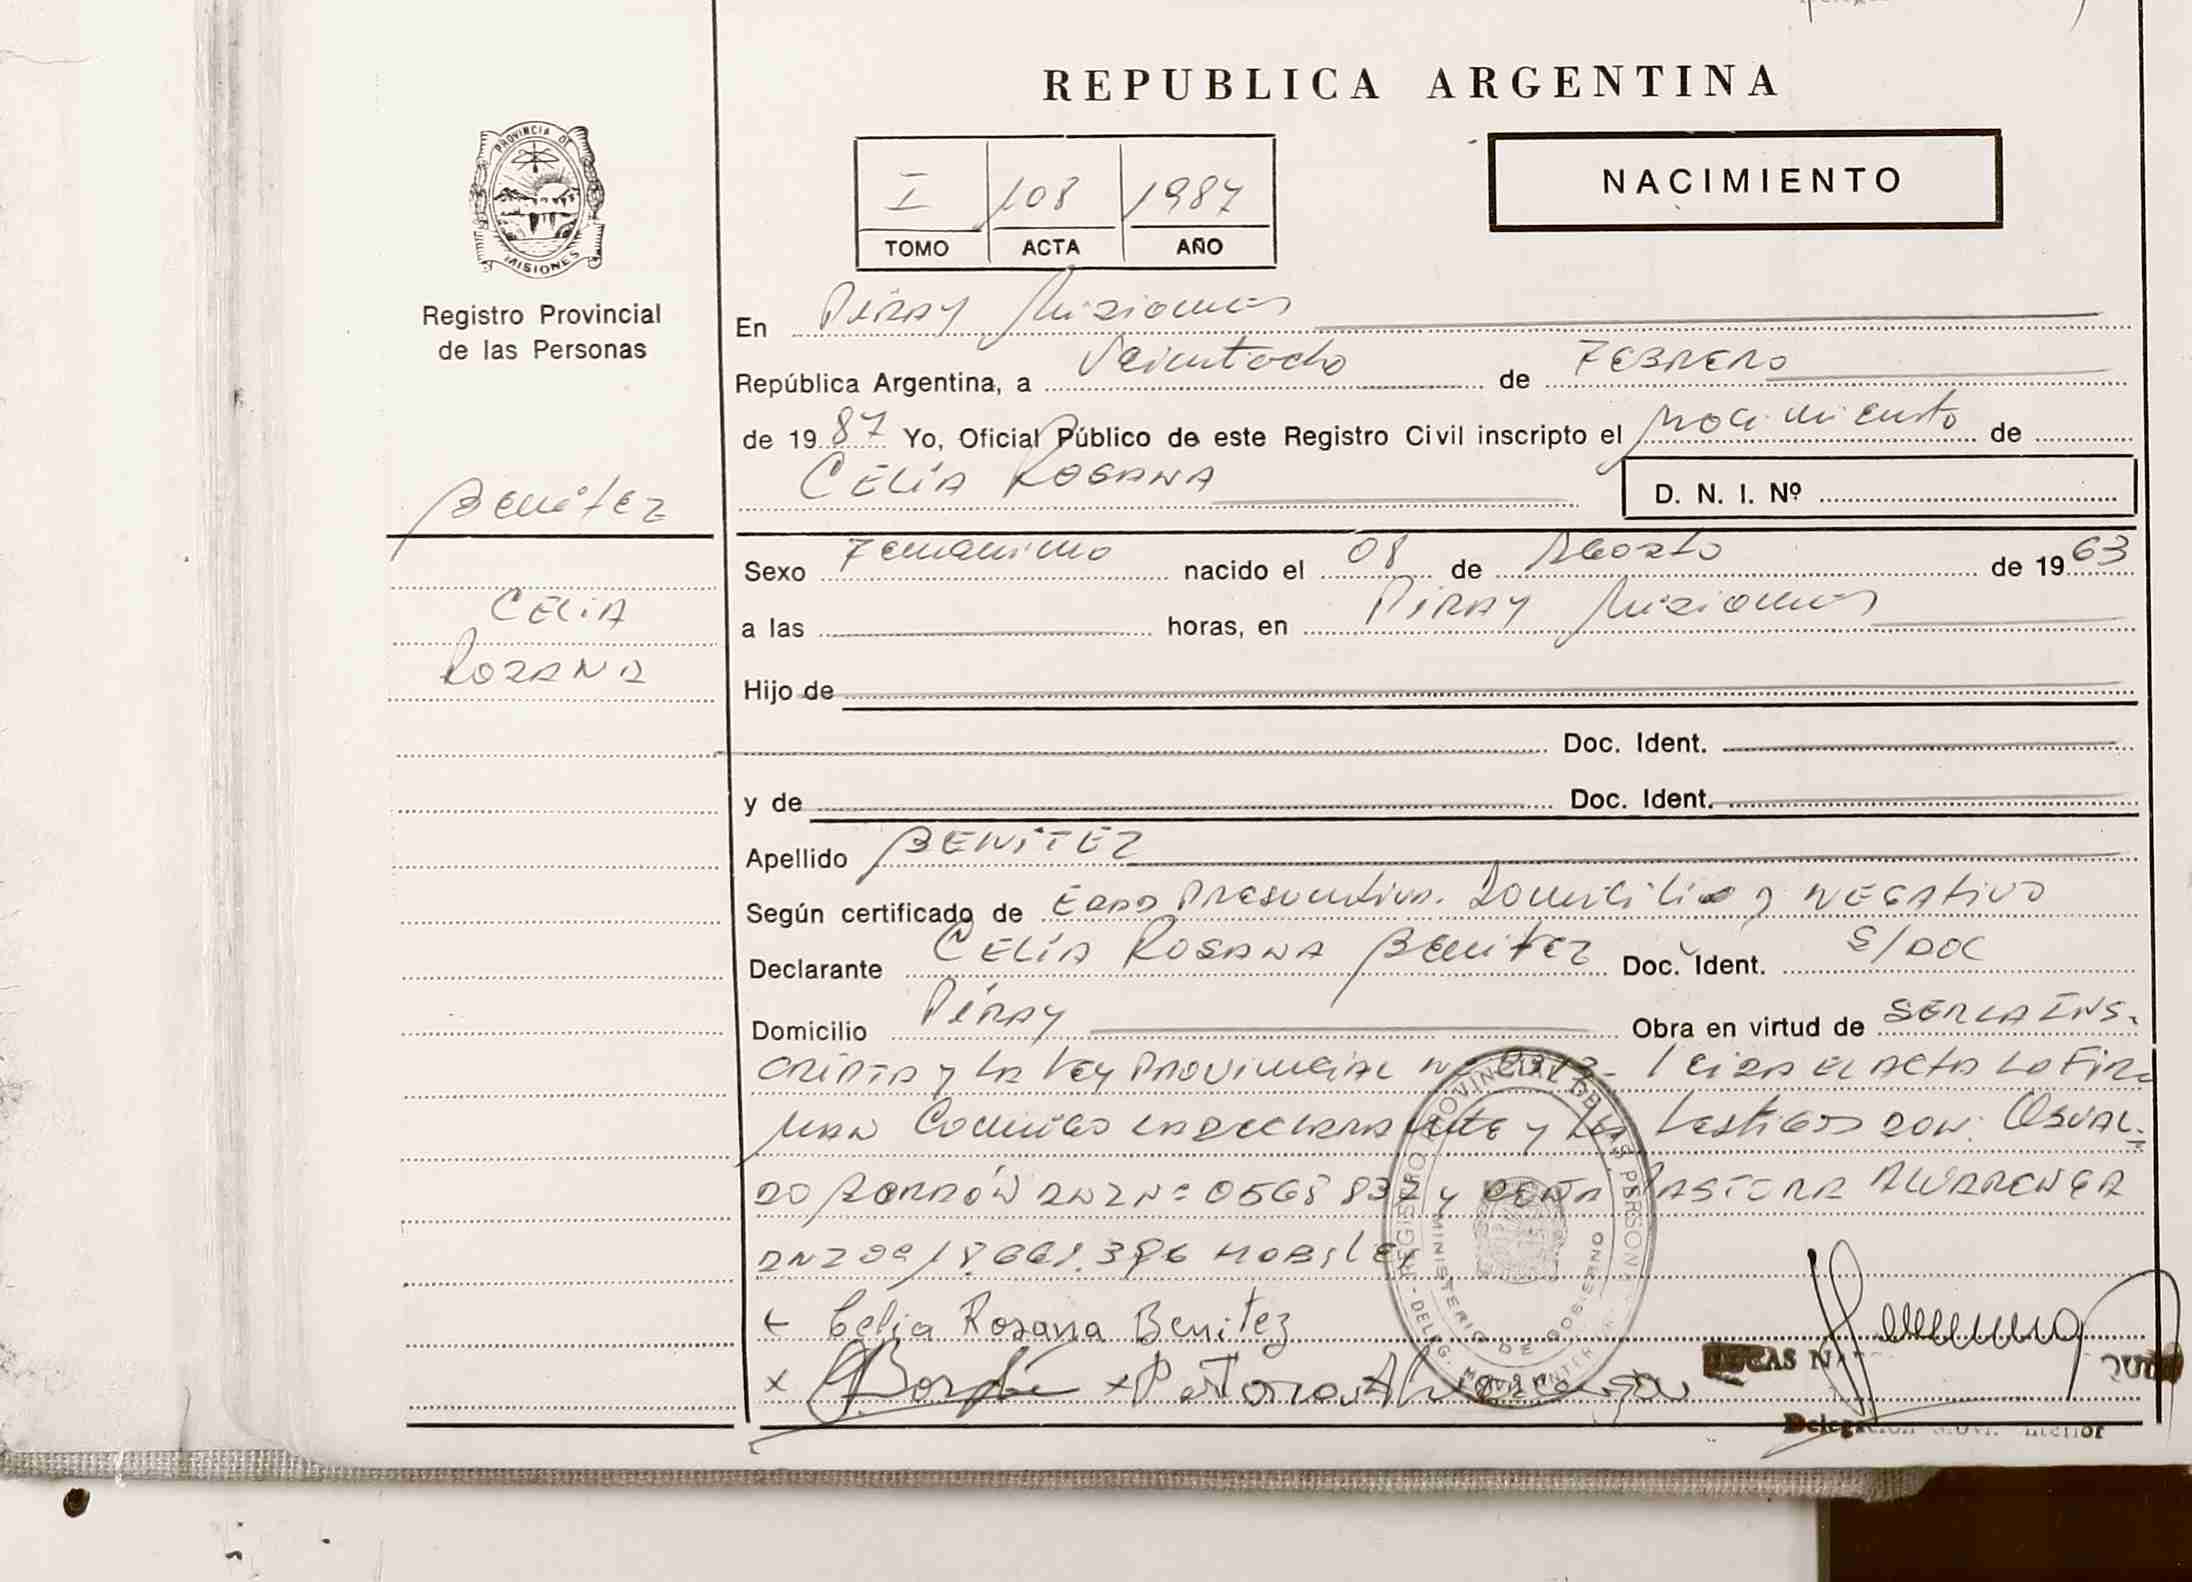 REPUBLICA ARGENTINA
PROVINCIA DE
MISIONES
Registro Provincial
de las Personas
I 108 1987
TOMO ACTA AÑO
NACIMIENTO
Benitez
CELIA
ROZANA
En Piray Misiones
República Argentina, a Veintiocho de FEBRERO
de 1987 Yo, Oficial Público de este Registro Civil inscripto el Nacimiento de
CELIA ROSANA D. N. I. Nº
Sexo Femenino nacido el 08 de Agosto de 1963
a las horas, en PIRAY Misiones
Hijo de
Doc. Ident.
y de Doc. Ident.
Apellido BENITEZ
Según certificado de Edad Presuntiva. Domicilio y NEGATIVO
Declarante CELIA ROSANA Benitez Doc. Ident. S/DOC
Domicilio Piray Obra en virtud de SER LA INS-
CRIPTA y LA Ley PROVINCIAL Leida EL ACTA LA FIR
MAN Conmigo LA DECLARANTE y Los Testigos DON: OSVAL-
DO y PASTORA ALVARENGA
x Celia Rosana Benitez
x x Pastora Alvarenga
REGISTRO PROVINCIAL DE LAS PERSONAS
MINISTERIO DE GOBIERNO